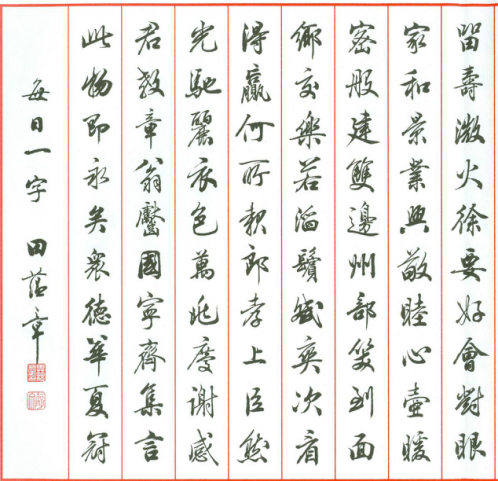 留壽激火徐要好會對眼
家和景業興敬睦心壺暖
密般建雙邊州部笑到面
鄉交樂若滔鬢奕次看
得贏何所郎孝上臣然
光馳麗衣色萬兆度謝感
君教章翁國寧齊集言
此物即永矣衆德華夏冠
每日一字 田蘊章